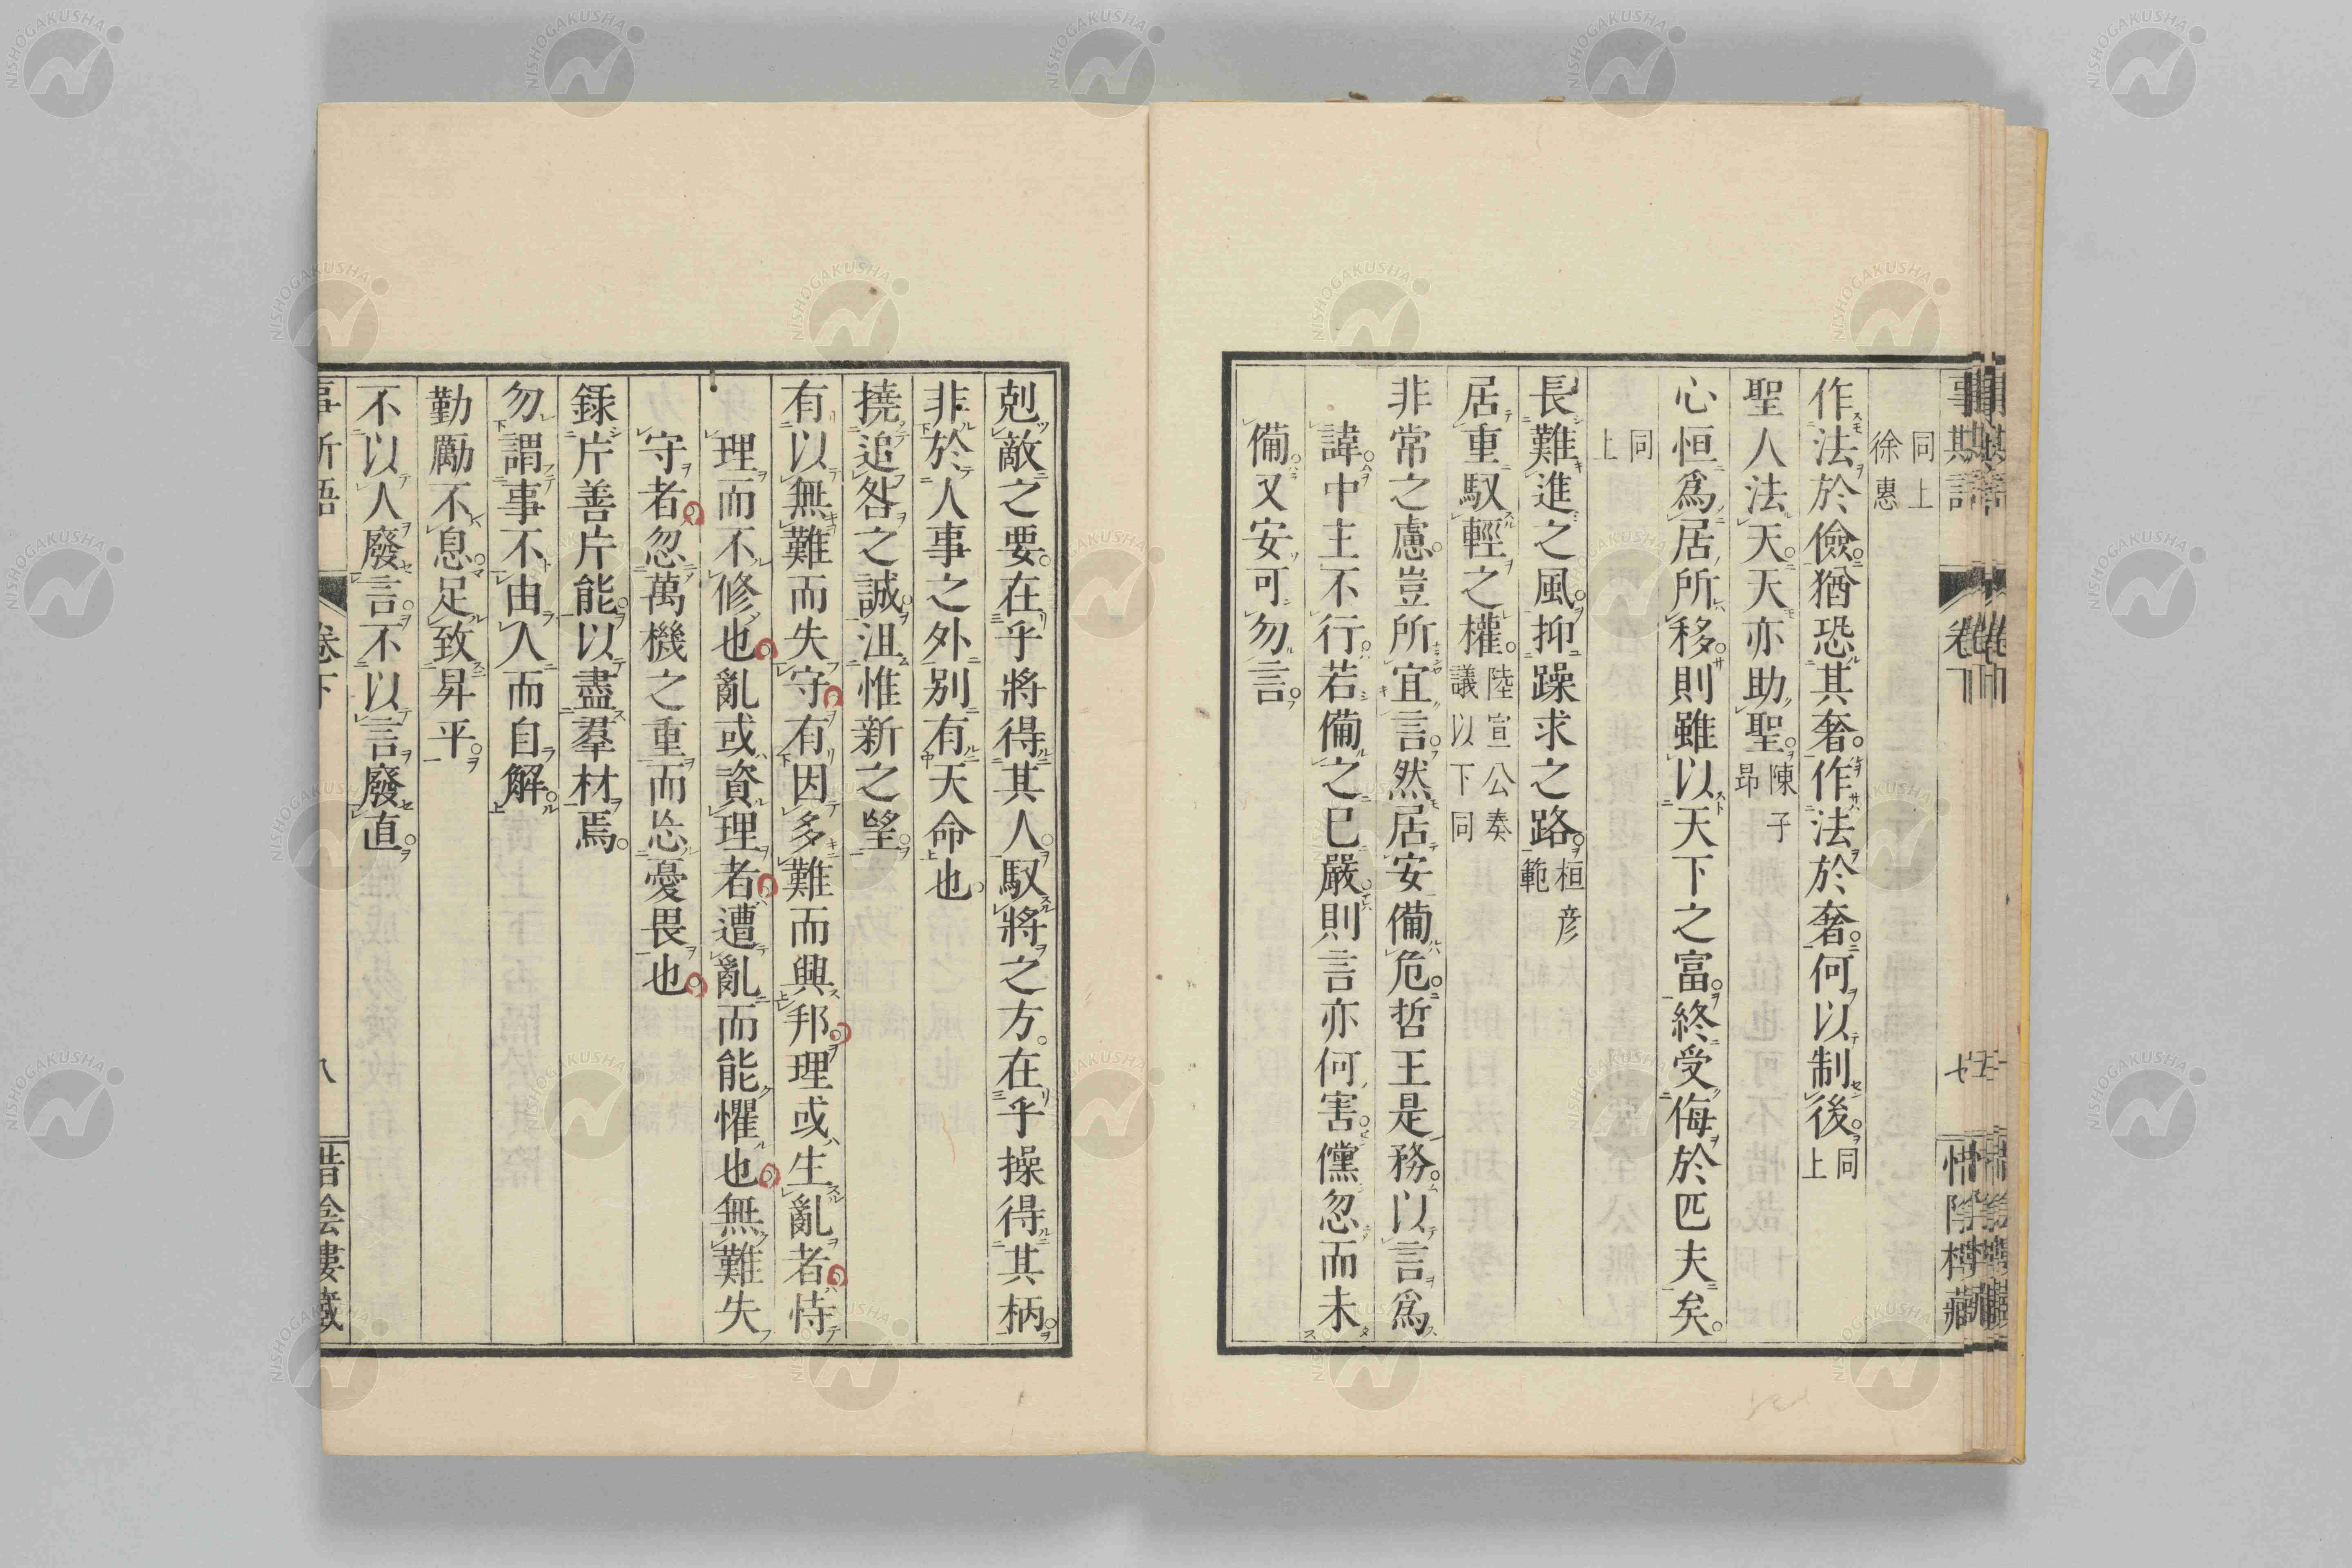 同上徐惠
作法於儉猶恐其奢作法於奢何以制後同上
聖人法天天亦助聖陳子昂
心恒爲居所移則雖以天下之富終受侮於匹夫矣
同上
長難進之風抑躁求之路桓彦範
居重馭輕之權陸宣公奏議以下同
非常之慮豈所宜言然居安備危哲王是務以言爲
諱中主不行若備之已嚴則言亦何害儻忽而未
備又安可勿言
剋敵之要在乎將得其人馭將之方在乎操得其柄
非於人事之外別有天命也
撓追咎之誠沮惟新之望
有以無難而失守有因多難而興邦理或生亂者恃
理而不修也亂或資理者遭亂而能懼也無難失
守者忽萬機之重而忘憂畏也
錄片善片能以盡羣材焉
勿謂事不由人而自解
勤勵不息足致昇平
不以人廢言不以言廢直
卷下
八